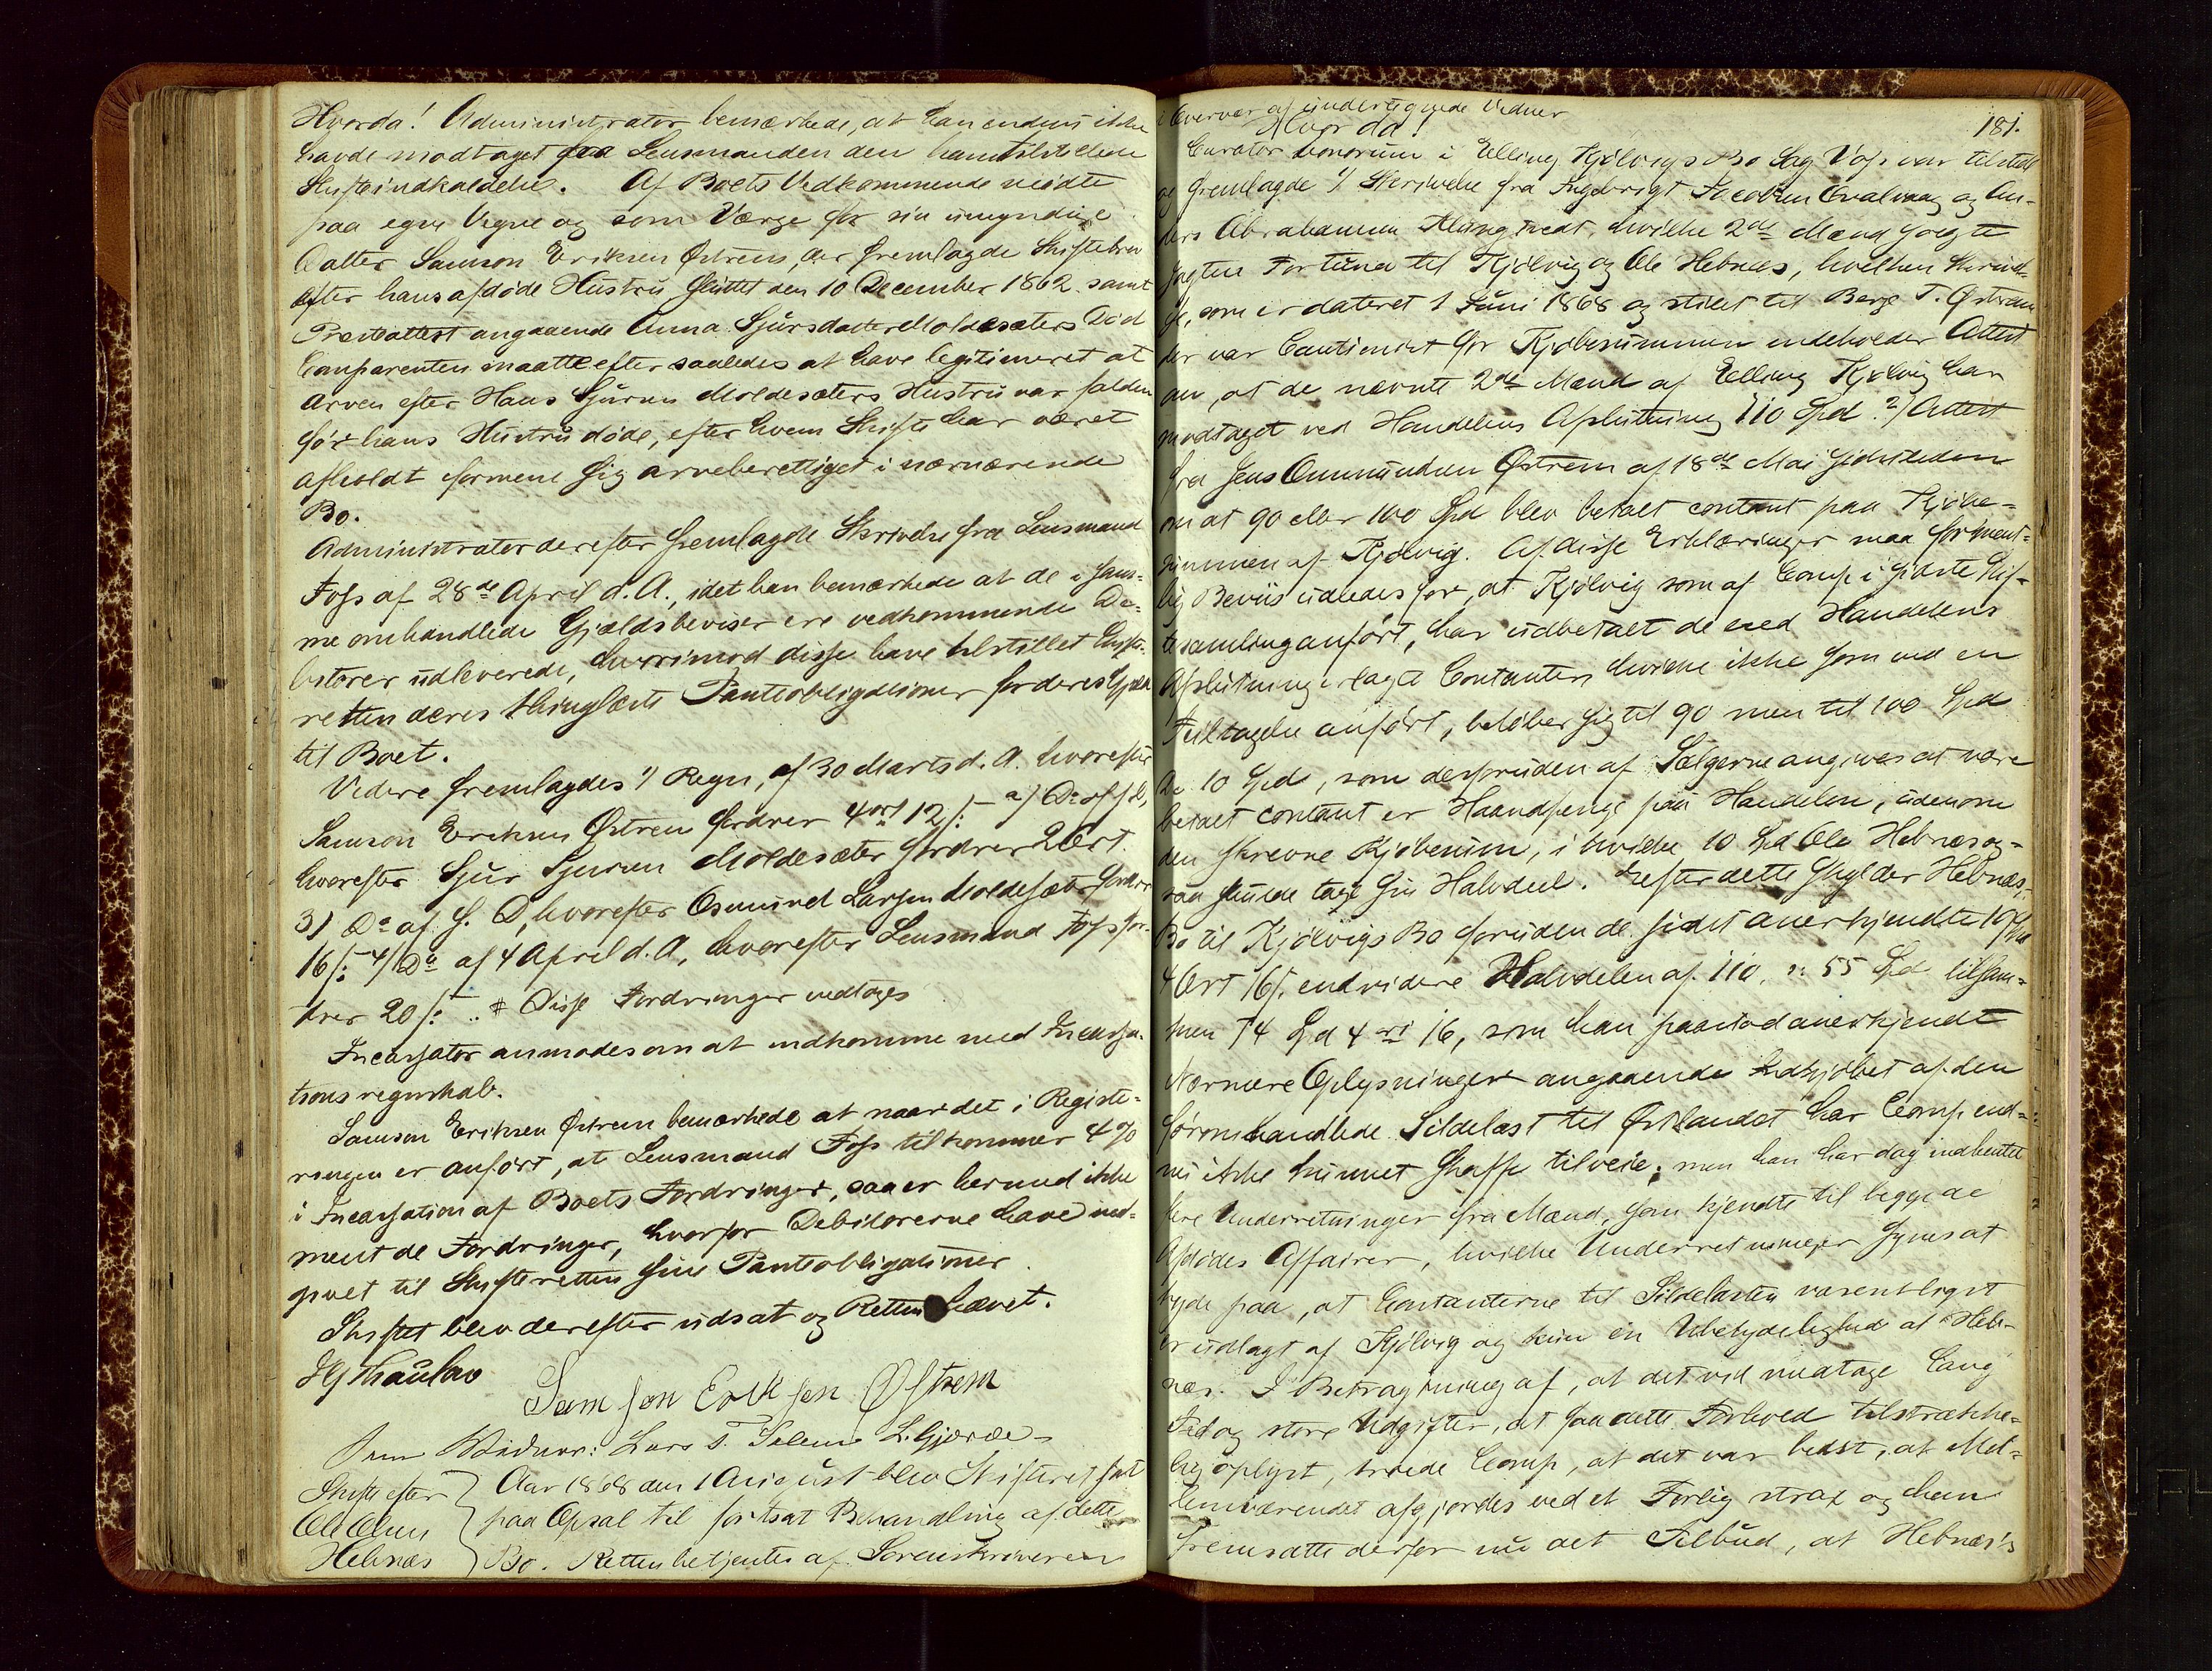 Hvorda! Administrator bemærkede, at han endnu ikke
havde modtaget fra Lensmanden den ham tilstillede
Skifteindkaldelse. Af Boets Vedkommende mødte
paa egne Vegne og som Værge for sin umyndige
Datter Samson Eriksen Østrem, der fremlagde Skiftebrev
efter hans afdøde Hustru sluttet den 10 December 1862 samt
Presteattest angaaende Anna Sjursdatter Moldesæters Død
Comparenten maatte efter saaledes at have legitimeret at
Arven efter Hans Sjursen Moldesæters Hustru var falden
før hans Hustru døde, efter hvem Skifte har været
afholdt formene sig arveberettiget i nærværende
Bo.
Administrator derefter fremlagde Skrivelse fra Lensmand
Foss af 28de April d. A., idet han bemærkede at de i sam-
me omhandlede Gjældsbeviser ere vedkommende De-
bitorer udleverede, hvorimod disse have tilstillet Skifte-
retten deres thinglæste Panteobligationer for deres Gjæld
til Boet.
Videre fremlagdes 1/ Regn, af 30 Marts d. A. hvorefter
Samson Eriksen Østrem fordrer 4 ort 12 s: 2) Do af s. D,
hvorefter Sjur Sjursen Moldesæter fordrer 2 Ort.
3) Do af s. D, hvorefter Osmund Larsen Moldesæter fordrer
16 s: 4/ Do af 4 April d. A, hvorefter Lensmand Foss for-
drer 20 s: Disse Fordringer vedtoges
Incassator anmodes om at indkomme med Incassa-
tions regnskab.
Samson Eriksen Østrem bemærkede at naar det i Registe-
ringen er anført, at Lensmand Foss tilkommer 4 %
i Incassation af Boets Fordringer, saa er hermed ikke
ment de Fordringer, hvorfor Debitorerne have ind-
givet til Skifteretten sine Panteobligationer
Skiftet blev derefter udsat og Retten hævet.
Samson Erikson Østrem
Som Vidner: Lars T. Selem L. Gjerde
Skifte efter Aar 1868 den 1 August blev Skifteret sat
Ole Olsen paa Opsal til fortsat Behandling af dette
Hebnæs Bo. Retten betjentes af Sorenskriveren
181.
i Overvær af undertegnede Vidner
Hvor da!
Curator bonorum i Elling Kjølvigs Bo Sag Voss var tilstede
og fremlagde 1/ Skrivelse fra Ingebrigt Jacobsen Qvalvaag og An-
ders Abrahamsen, hvilke 2de Mænd solgte
Jagten Fortuna til Kjølvig og Ole Hebnæs, hvilken Skrivel-
se, som er dateret 1 Juni 1868 og stilet til Berge T. Østrem
der var Cautionist for Kjøbesummen indeholder Attest
om, at de nævnte 2de Mænd af Elling Kjølvig har
modtaget ved Handelens Afslutning 110 Spd. 2) Attest
fra Jens Ommundsen Østrem af 18de Mai sidstleden
om at 90 eller 100 Spd blev betalt contant paa Kjøbe-
summen af Kjølvig. Af disse Erklæringer maa forment-
lig Beviis udledes for, at Kjølvig som af Comp i sidste Skif-
tesamling anført, har udbetalt de ved Handelens
Afslutning erlagte Contanter, hvilke ikke som ved en
Feiltagelse anført, beløber sig til 90 men til 100 Spd
De 10 Spd, som desforuden af Sælgerne angives at være
betalt contant er Haandpenge paa Handelen, udenom
den skrevne Kjøbesum, i hvilke 10 Spd Ole Hebnæs og-
saa skulde tage sin Halvdeel. Efter dette skylder Hebnæs
Bo til Kjølvigs Bo foruden de sidst anerkjendte 19 Spd
4 Ort 16 s. endvidere Halvdelen af 110, ɔ: 55 Spd tilsam-
men 74 Spd 4 ort 16, som han paastod anerkjendt
Nærmere Oplysninger angaaende Indkjøbet af den
føromhandlede Sildelast til Østlandet har Comp end-
nu ikke kunnet skaffe tilveie; men han har dog indhentet
flere Underretninger fra Mænd, som kjendte til begge de
Afdødes Affairer, hvilke Underretninger synes at
tyde paa, at Contanterne til Sildelasten væsentligst
er udlagt af Kjølvig og kun en Ubetydelighed af Heb-
næs. I Betragtning af, at det vil medtage lang
Tid og store Udgifter, at faa dette Forhold tilstrække-
lig oplyst, troede Comp, at det var bedst, at Mel-
lemværendet afgjordes ved et Forlig strax og han
fremsatte derfor nu det Tilbud, at Hebnæs's